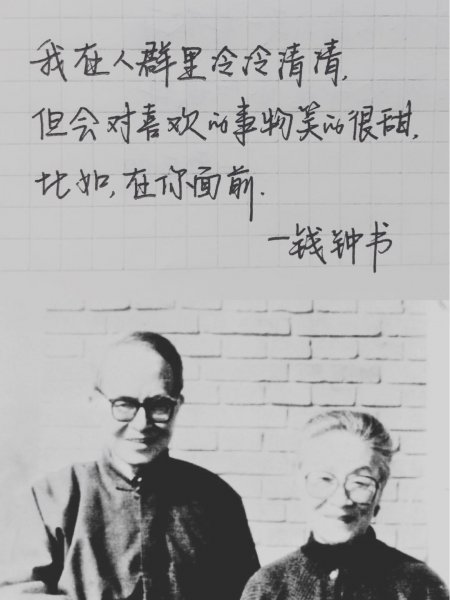 我在人群里冷冷清清,
但会对喜欢的事物笑的很甜,
比如,在你面前.
—钱钟书